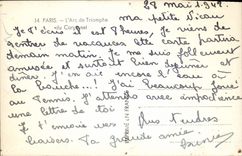 14. PARIS. — L'Arc de Triomphe
27 mai 1948.
ma petite
Je t'écris. Il est 9 heures, je viens de
rentrer de vacances cette carte partira
demain matin. Je me suis follement
amusée et surtout bien
dîner. J'en ai encore l'eau à
la bouche...! J'ai beaucoup joué
au Tennis. J'attends avec impatience
une lettre de toi
Je t'envoie mes plus tendres
baisers. Ta grande amie